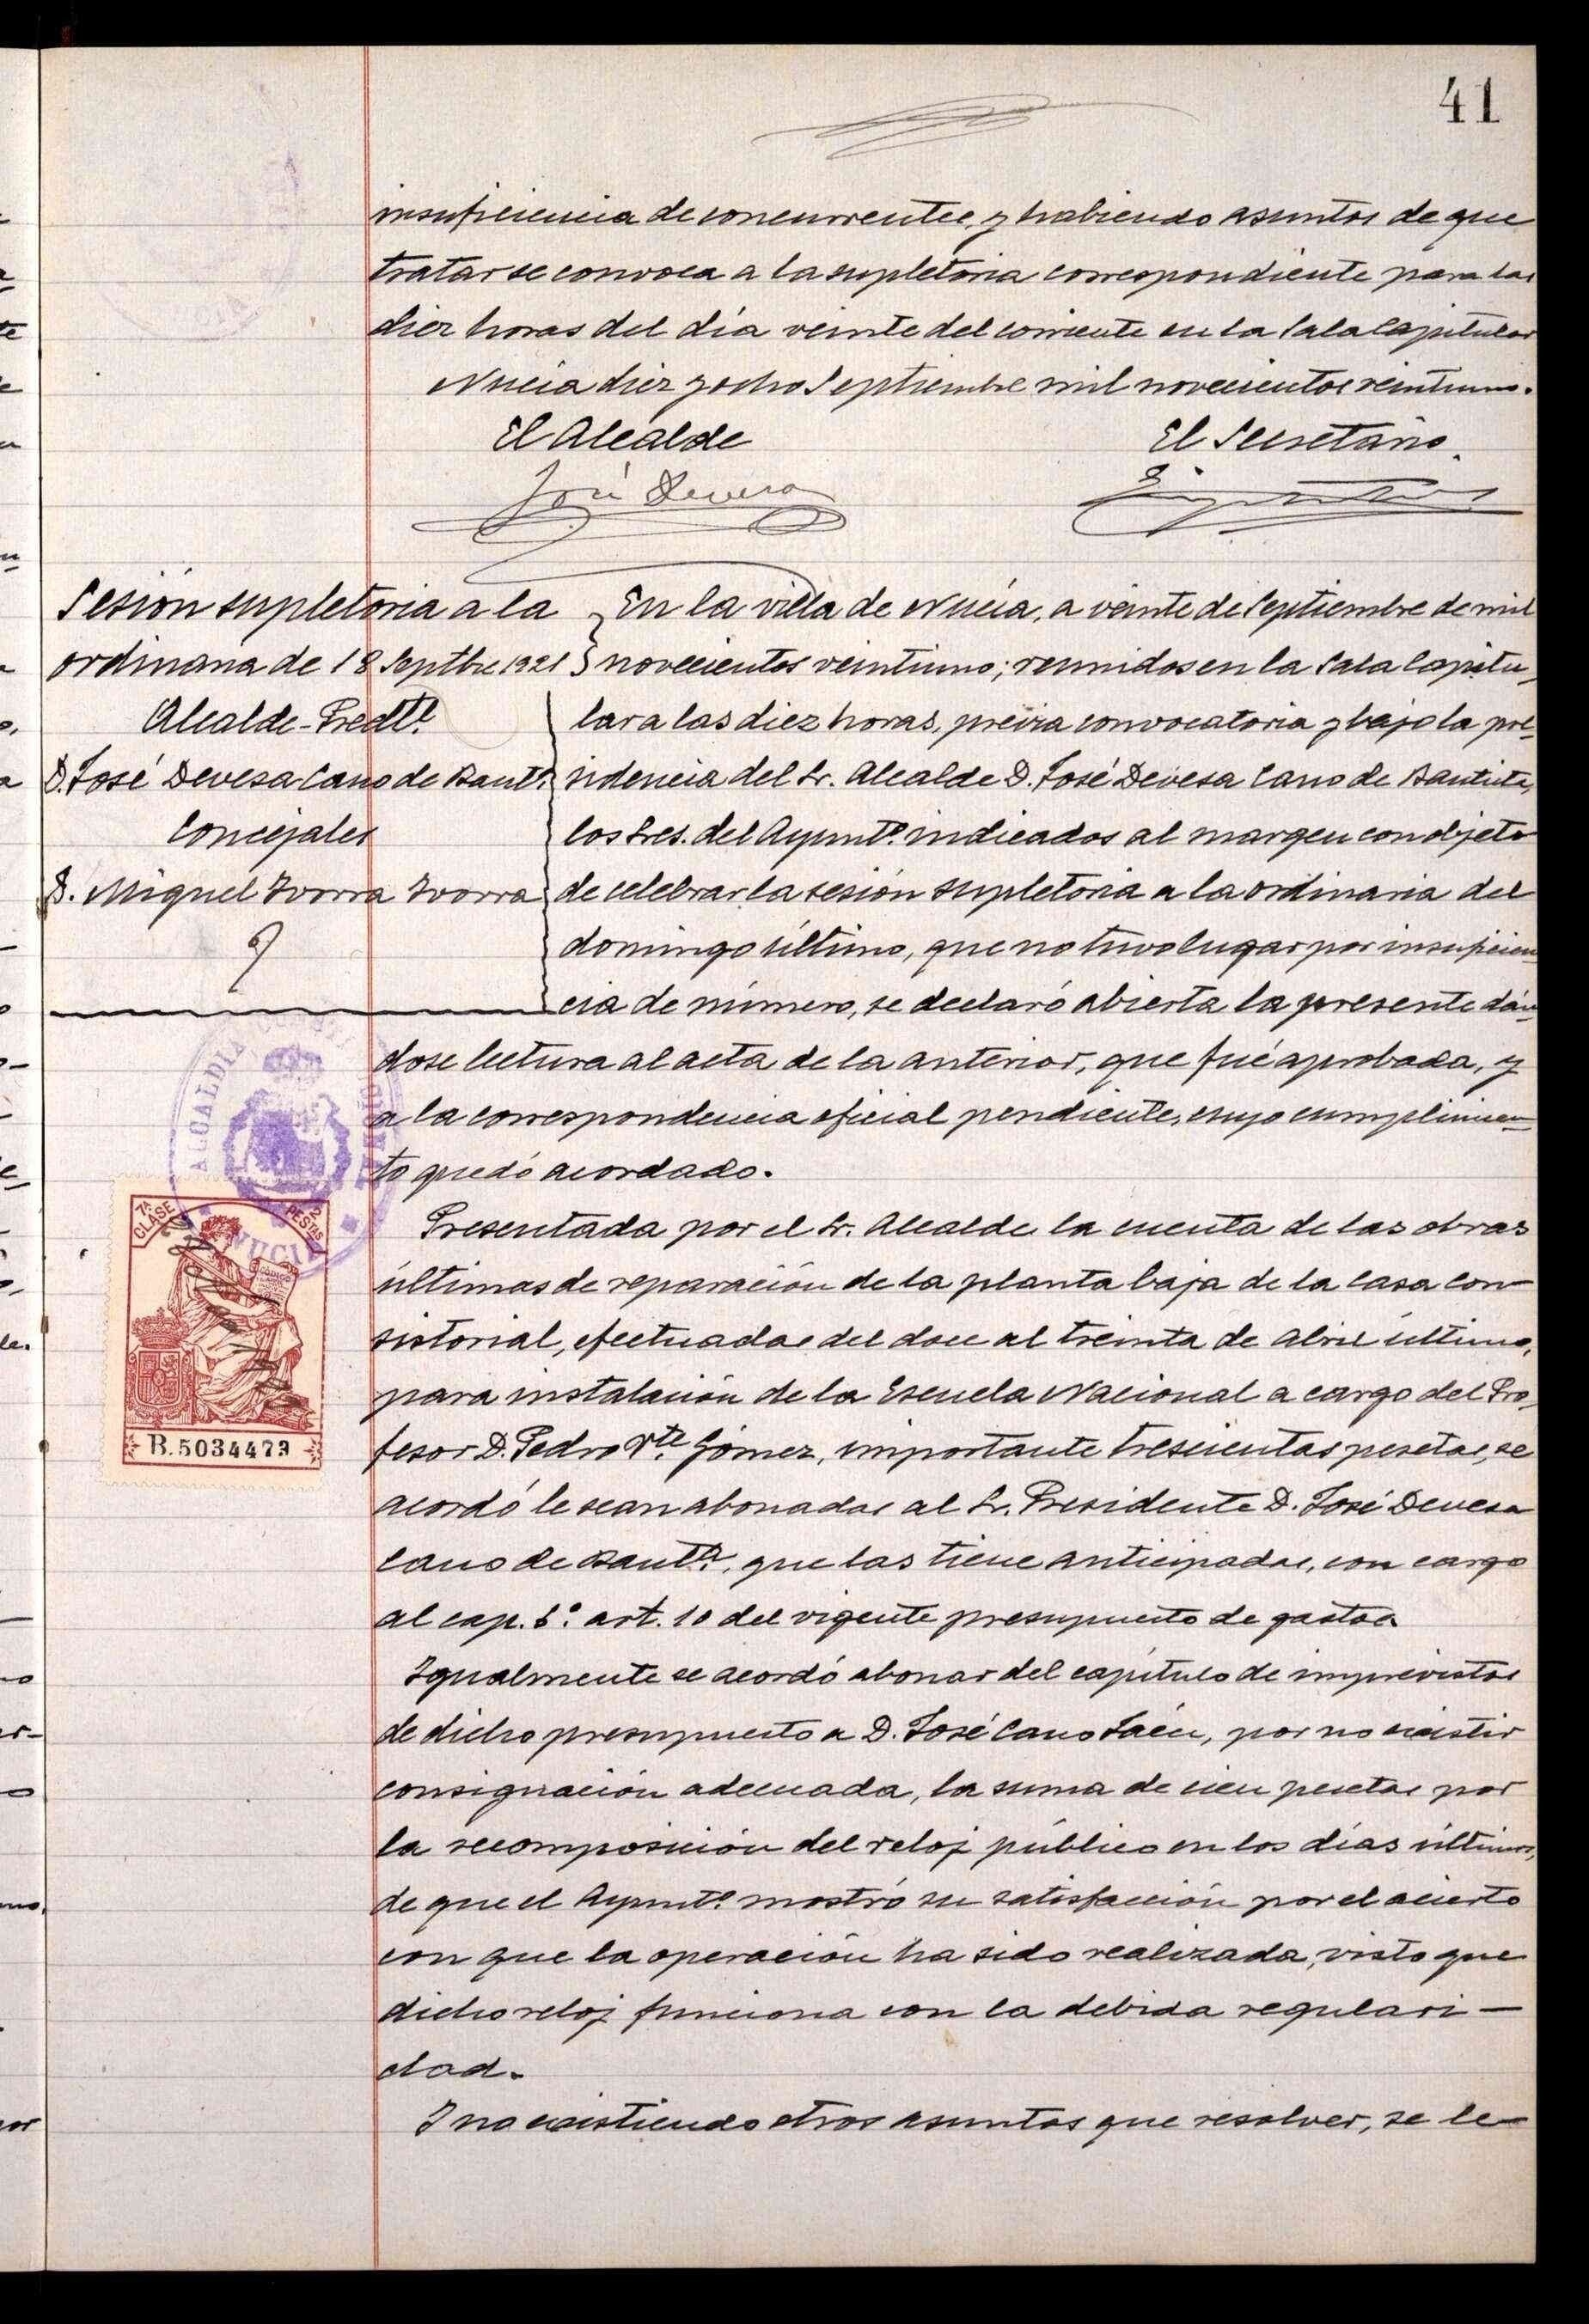 41
insuficiencia de concurrentes, y habiendo asuntos de que
tratar se convoca a la supletoria correspondiente para las
diez horas del día veinte del corriente en la Sala Capitular
Nucia diez y ocho Septiembre mil novecientos veintiuno.
El Alcalde
El Secretario
José Devesa
Sesión supletoria a la
ordinaria de 18 Septbre 1921
Alcalde-Predte.
D. José Devesa Cano de Bautª.
Concejales
D. Miguel Ivorra Ivorra
En la villa de Nucía, a veinte de Septiembre de mil
novecientos veintiuno; reunidos en la Sala Capitu-
lar a las diez horas, previa convocatoria y bajo la pre-
sidencia del Sr. Alcalde D. José Devesa Cano de Bautista,
los Sres. del Ayuntº. indicados al margen con objeto
de celebrar la sesión supletoria a la ordinaria del
domingo último, que no tuvo lugar por insuficien-
cia de número, se declaró abierta la presente dán-
dose lectura al acta de la anterior, que fué aprobada, y
a la correspondencia oficial pendiente, cuyo cumplimien-
to quedó acordado.
ALCALDIA
NUCIA
7ª CLASE
2 PESETAS
B.5034473
Presentada por el Sr. Alcalde la cuenta de las obras
últimas de reparación de la planta baja de la casa con-
sistorial, efectuadas del doce al treinta de Abril último,
para instalación de la Escuela Nacional a cargo del Pro-
fesor D. Pedro Vte. Gómez, importante trescientas pesetas, se
acordó le sean abonadas al Sr. Presidente D. José Devesa
Cano de Bautª., que las tiene anticipadas, con cargo
al cap. 6.º art. 10 del vigente presupuesto de gastos
Igualmente se acordó abonar del capítulo de imprevistos
de dicho presupuesto a D. José Cano Jaén, por no existir
consignación adecuada, la suma de cien pesetas por
la recomposición del reloj público en los días últimos,
de que el Ayuntº. mostró su satisfacción por el acierto
con que la operación ha sido realizada, visto que
dicho reloj funciona con la debida regulari-
dad.
Y no existiendo otros asuntos que resolver, se le-